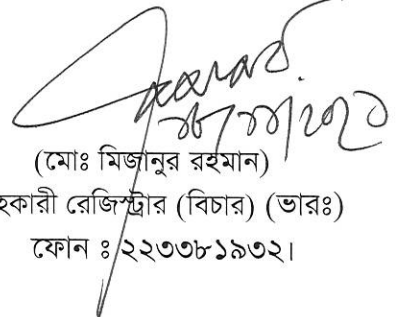 (মোঃ মিজানুর রহমান)
হকারী রেজিস্ট্রার (বিচার) (ভারঃ)
ফোন ঃ ২২৩৩৮১৯৩২।